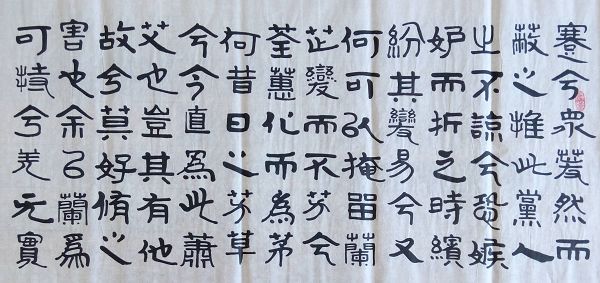 蹇兮衆薆然而
蔽之惟此黨人
之不諒兮恐嫉
妒而折之時繽
紛其變易兮又
何可以掩留蘭
芷變而不芳兮
荃蕙化而為茅
何昔日之芳草
兮今直為此蕭
艾也豈其有他
故兮莫好脩之
害也余以蘭為
可恃兮羌无實